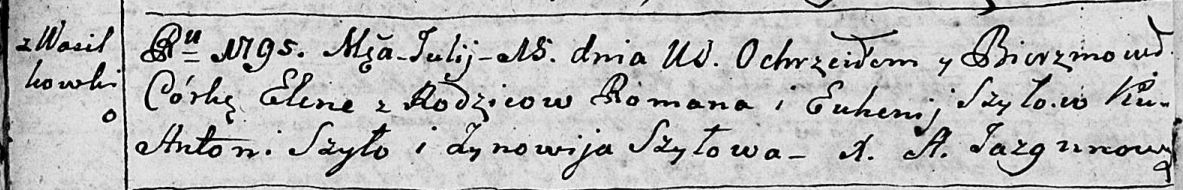 z Wasil
kowki
o
Ru 1795. Mca Julij 15. dnia Ochrzciłem y Bierzmowł
Córkę Elenę z Rodzicow Romana i Euhenij Szyłow Ku-
Anton. Szyło i Zynowija Szyłowa - X. A. Jazgunowy